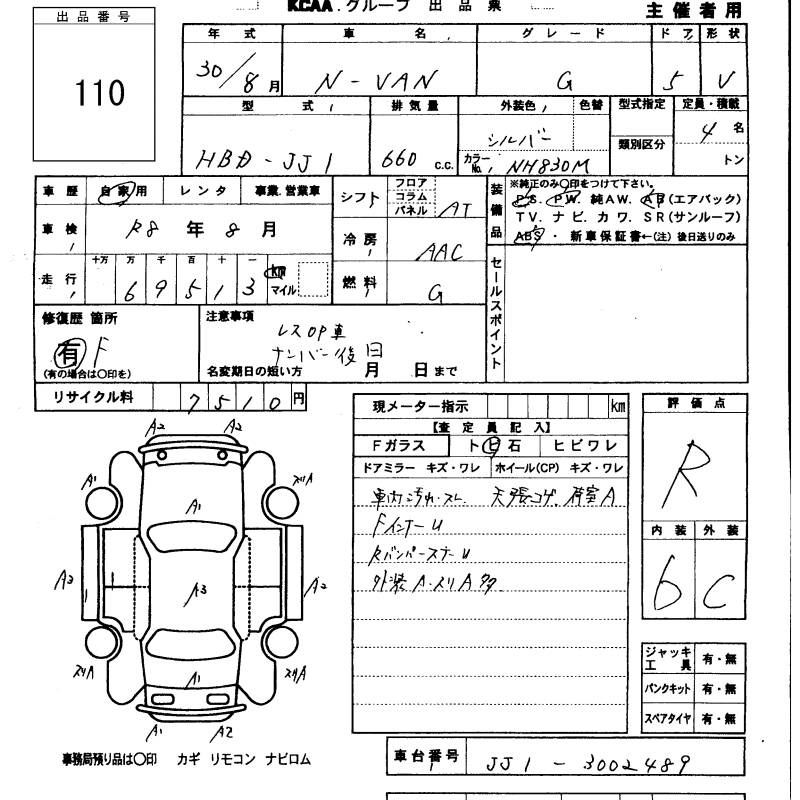 KCAA.グループ 出品票
主催者用
出品番号
110
年式 車名 グレード ドア 形状
30/8月 N-VAN G 5 V
型式 排気量 外装色 色替 型式指定 定員・積載
HBD-JJ1 660 c.c. シルバー 類別区分 4名
カラーNo. NH830M トン
車歴 自家用 レンタ 事業.営業車
車検 R8年8月
走行 十万 万 千 百 十 一 km マイル
69513
シフト フロア コラム パネル AT
冷房 AAC
燃料 G
装備品 ※純正のみ○印をつけて下さい。
P.S. P.W. 純A.W. AB(エアバック)
T V. ナ ビ. カ ワ. S R(サンルーフ)
ABS・新車保証書←(注) 後日送りのみ
セールスポイント
修復歴 箇所
有 F
(有の場合は○印を)
注意事項
レスOP車
ナンバー後日
名変期日の短い方 月 日まで
リサイクル料 7510円
現メーター指示 km
【査定員記入】
Fガラス トビ石 ヒビワレ
ドアミラー キズ・ワレ ホイール(CP) キズ・ワレ
車内汚れ・スレ 天張コゲ. 荷室A
FインナーU
RバンパーステーU
外装A・スリA多
評価点
R
内装 外装
6 C
A2 A2
A1 スリA
A1
A3 A3 A2
スリA スリA
A1
A1 A2
ジャッキ工具 有・無
パンクキット 有・無
スペアタイヤ 有・無
事務局預り品は○印 カギ リモコン ナビロム
車台番号 JJ1-3002489